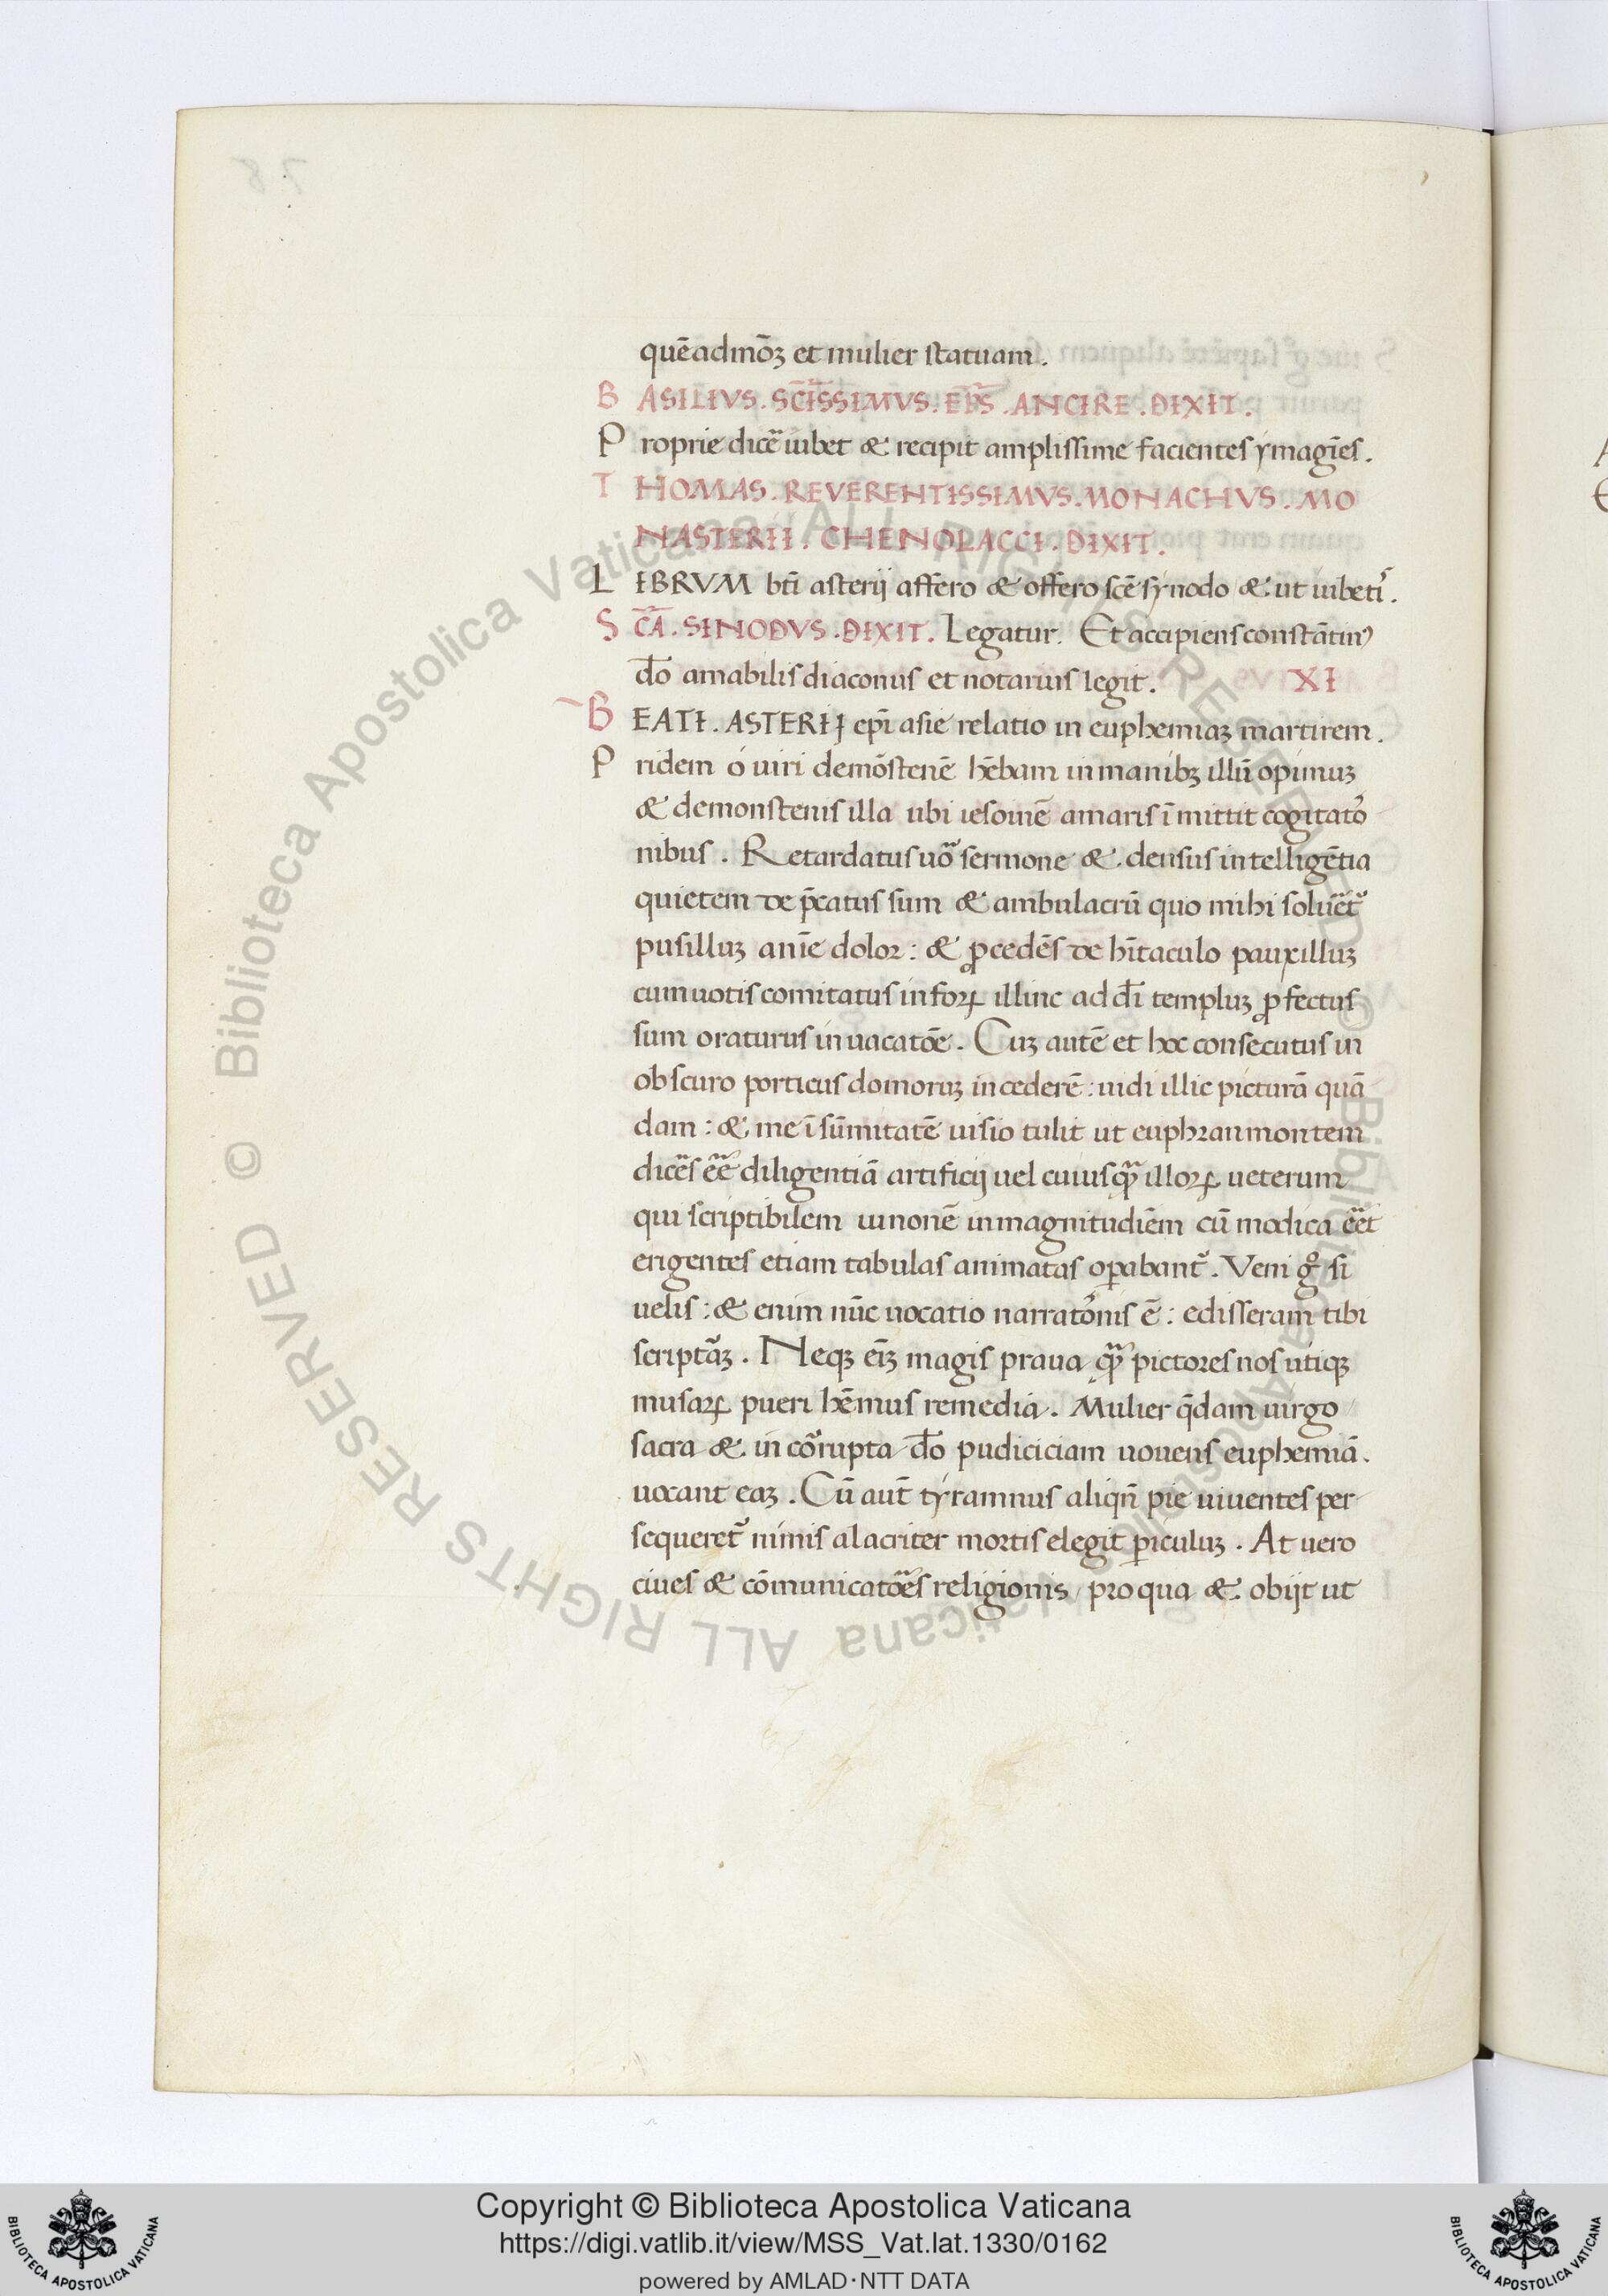 quēadmōꝫ et mulier statuam.
BASILIVS. SCISSIMVS. EPS. ANCIRE. DIXIT.
Proprie dicē iubet & recipit amplissime facientes ymagīes.
THOMAS. REVERENTISSIMVS. MONACHVS. MO
NASTERII. CHENOLACCI. DIXIT.
LIBRVM bt̄i asterij affero & offero scē synodo & ut iubetr̄.
SCA. SINODVS. DIXIT. Legatur. Et accipiens constātinꝰ
d̄o amabilis diaconus et notarius legit. XI
BEATI. ASTERIJ ep̄i asie relatio in euphemiaꝫ martirem.
Pridem ó uiri demōstenē hēbam in manibꝫ illū opimuꝫ
& demonstenis illa ubi iesoinē amaris ī mittit cogitatō
nibus. Retardatus uō sermone & densus intelligētia
quietem de p̄catus sum & ambulacrū quo mihi solueēt
pusilluꝫ anīe dolor: & ꝓcedēs de hītaculo pauxilluꝫ
cum uotis comitatus in forꝝ illinc ad d̄i templuꝫ ꝓfectus
sum oraturus in uacatōe. Cuꝫ autē et hoc consecutus in
obscuro porticus domoruꝫ incederē: uidi illic picturā quā
dam: & me ī sūmitatē uisio tulit ut euphran montem
dicēs eē diligentiā artificij uel cuiusꝗ illorꝝ ueterum
qui scriptibilem uinonē in magnitudiēm cū modica eēt
erigentes etiam tabulas animatas oꝑabant᷑. Veni gͦ si
uelis: & enim nūc uocatio narratōnis ē: edisseram tibi
scriptāꝫ. Neqꝫ eīꝫ magis praua ꝗ pictores nos utiqꝫ
musarꝝ pueri hēmus remedia. Mulier q̄dam uirgo
sacra & in corrupta d̄o pudiciciam uouens euphemiā.
uocant eaꝫ. Cū aut̄ tyramnus aliqn̄ pie uiuentes per
sequeret᷑ nimis alacriter mortis elegit ꝑiculuꝫ. At uero
ciues & cōmunicatōes religionis / pro qua & obijt ut
Biblioteca Apostolica Vaticana ALL RIGHTS RESERVED ©
Biblioteca Apostolica Vaticana ALL RIGHTS RESERVED ©
Copyright © Biblioteca Apostolica Vaticana
https://digi.vatlib.it/view/MSS_Vat.lat.1330/0162
powered by AMLAD·NTT DATA
BIBLIOTECA APOSTOLICA VATICANA
BIBLIOTECA APOSTOLICA VATICANA